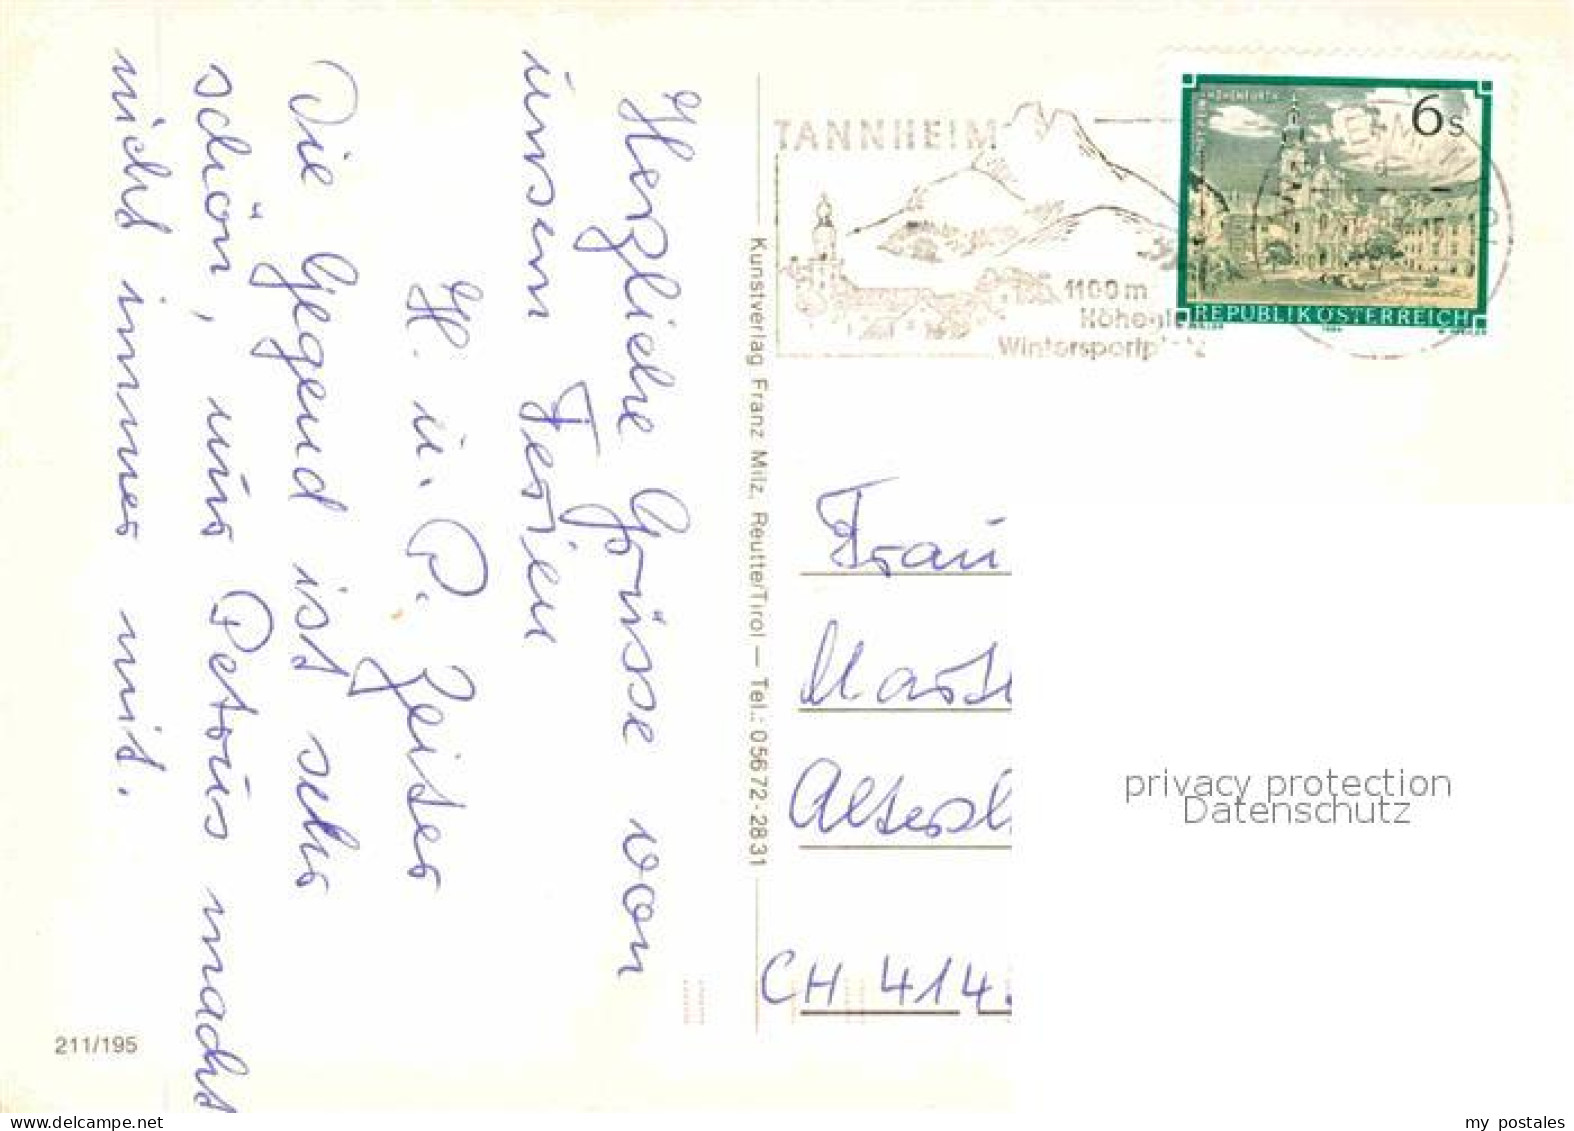 Herzliche Grüsse von
unsern Ferien
H. u. P. Zeiter
Die Gegend ist sehr
schön, nur Petrus macht
nicht immer mit.
211/195
Kunstverlag Franz Milz, Reutte/Tirol — Tel.: 05672-2831
TANNHEIM
1100 m
Wintersportplatz
6 S
REPUBLIK ÖSTERREICH
Frau
CH 414
privacy protection
Datenschutz
www.delcampe.net
my postales